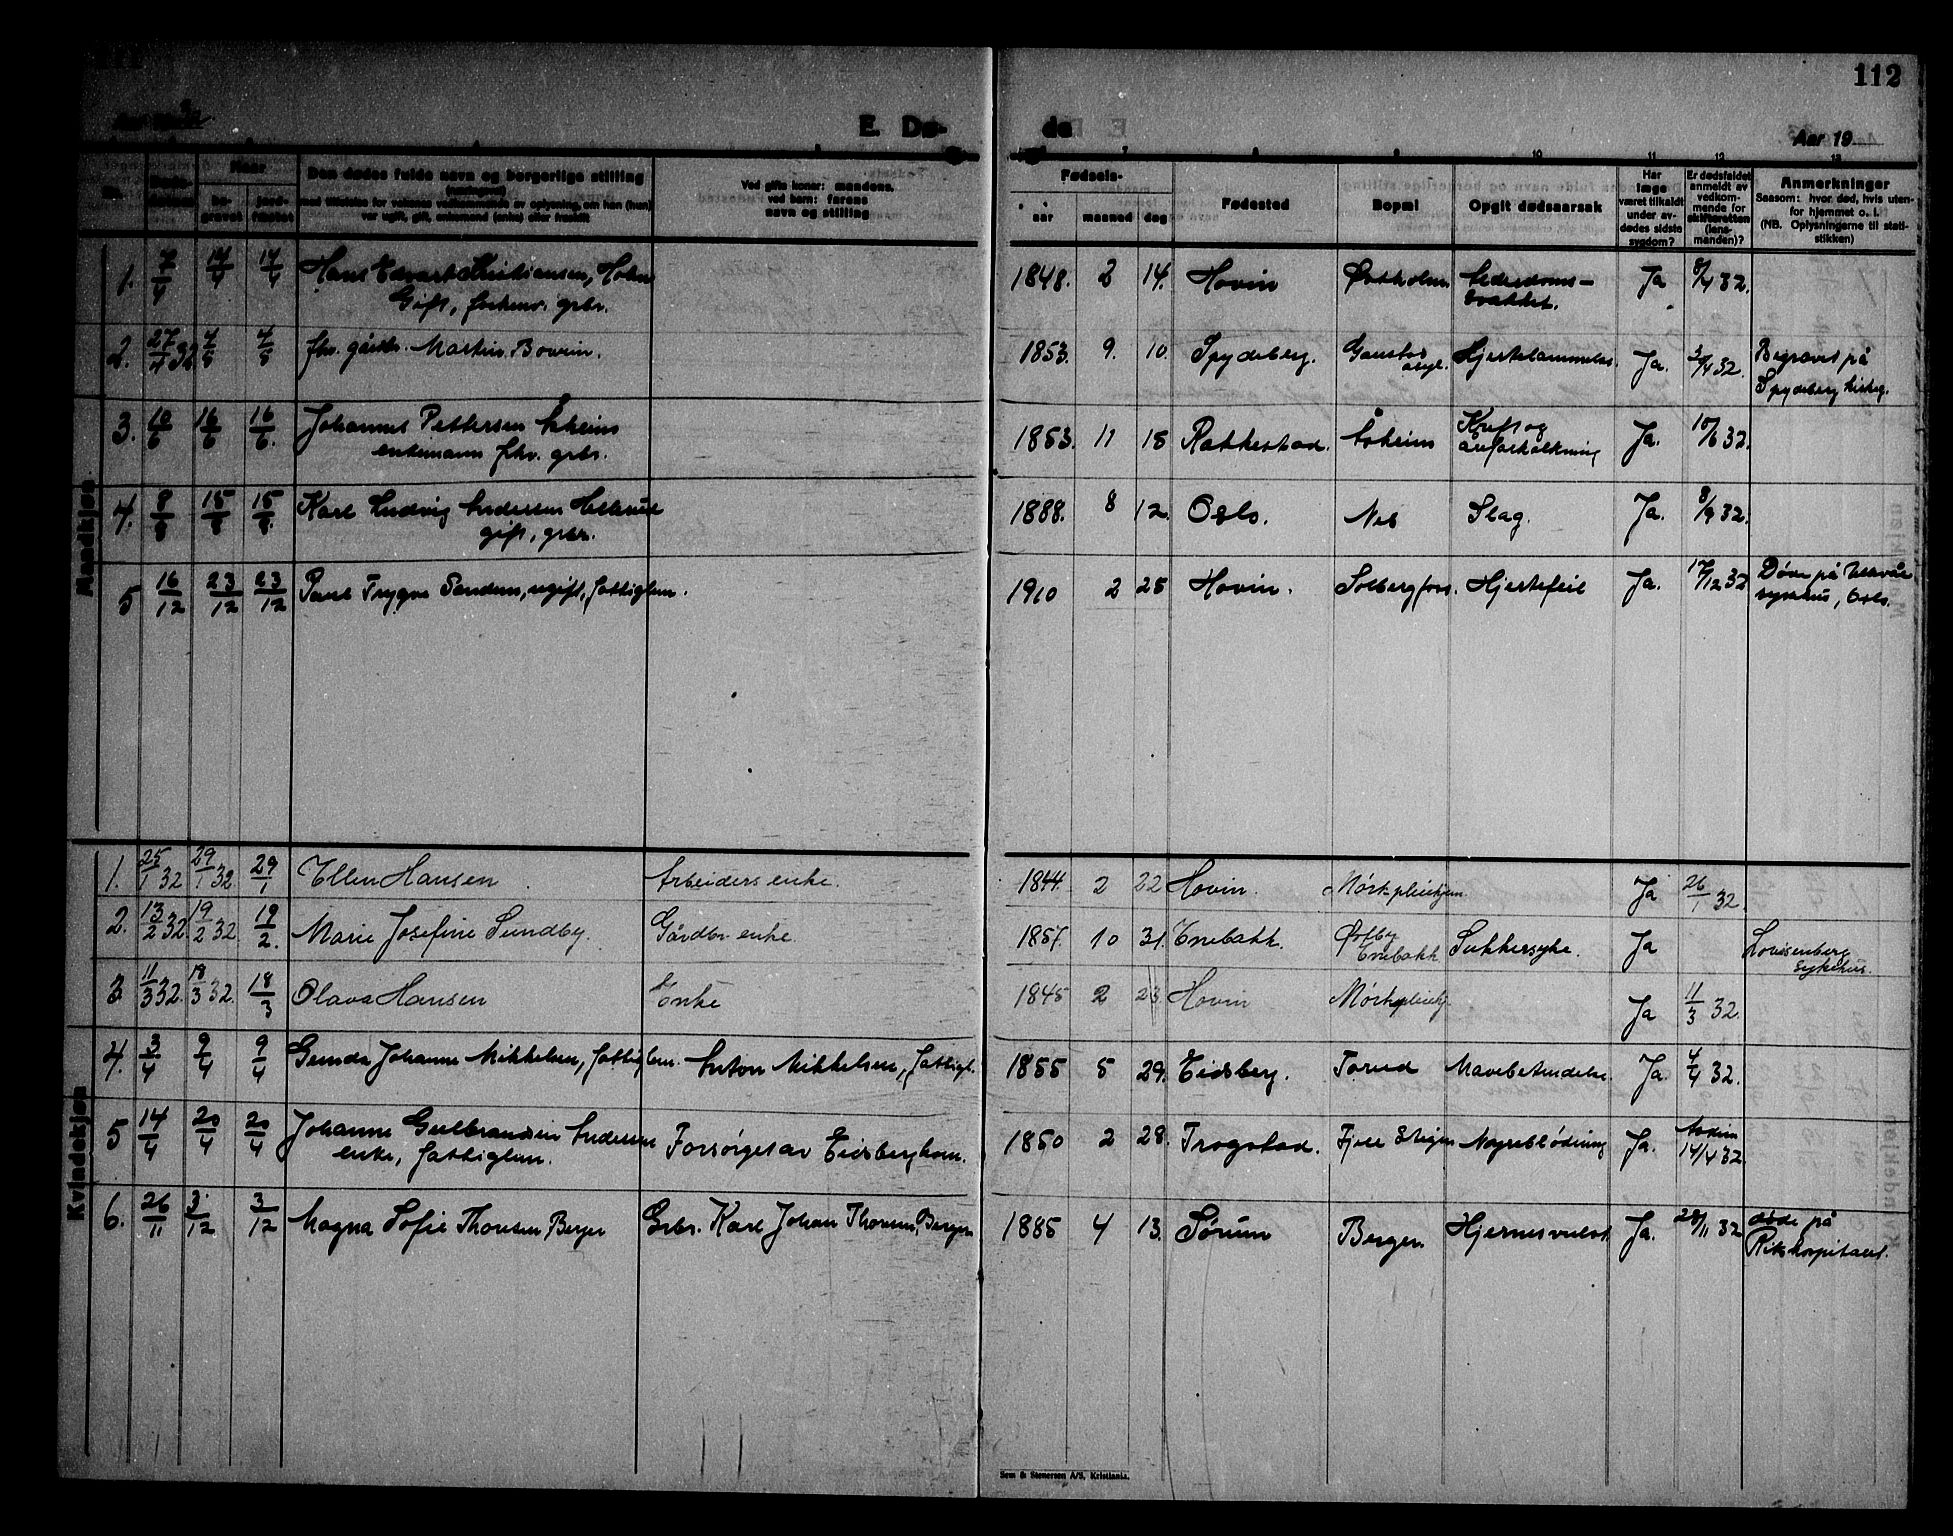 112
E. Dø-
de
Aar 19
Nr.
Døds-
datum
Naar
Be-
gravet
Jord-
fæstet
Den dødes fulde navn og borgerlige stilling
Ved gifte koner: mandens,
ved barn: farens
navn og stilling
Fødsels-
aar
maaned
dag
Fødested
Bopæl
Opgit dødsaarsak
Har
læge
været tilkaldt
under av-
dødes sidste
sygdom?
Er dødsfaldet
anmeldt av
vedkom-
mende for
skifteretten
(lens-
manden)?
Anmerkninger
Saasom: hvor død, hvis uten-
for hjemmet o. l.
(NB. Oplysningerne til stati-
stikken)
Mandkjøn
1. 7/4 14/4 14/4 Hans Edvart Kristiansen, Holm 1848. 2 14. Hovin Alderdoms- Ja 8/4 32.
Gift, forhenv. grbr. svakhet.
2. 27/4 32 4/5 4/5 fhv. gårdbr. Martin Bovim. 1853. 9. 10. Spydeberg. Gaustad Hjertelammelse. Ja. 3/4 32. Begravet på
asyl. Spydeberg kirkeg.
3. 10/6 16/6 16/6. Johannes Pettersen Åsheim 1853. 11 18 Rakkestad. Åsheim Kreft og Ja. 10/6 32.
enkemann fhv. grbr. åreforkalkning
4. 8/8 15/8 15/8. Karl Ludvig Andersen Hellerud 1888. 8 12. Oslo. Nes Slag. Ja. 8/9 32.
gift, grbr.
5 16/12 23/12 23/12 Paul Trygve Sandem, ugift, fattiglem. 1910 2 25 Hovin. Solbergfoss. Hjertefeil Ja. 17/12 32 Døde på Ullevål
sykehus, Oslo.
Kvindekjøn
1. 25/1 32 29/1 32. 29/1 Ellen Hansen Arbeiders enke. 1844. 2 22 Hovin. Mørk pleiehjem. Ja 26/1 32.
2. 13/2 32. 19/2 32. 19/2. Marie Josefine Sundby. Gårdbr enke. 1857. 10 31. Enebakk. Sukkersyke. Ja Lovisenberg
Enebakk sykehus.
3. 11/3 32. 18/3 32. 18/3 Olava Hansen Enke 1845 2 23. Hovin Mørk pleiehj. Ja 11/3 32.
4. 3/4 9/4 9/4 Gunda Johanne Mikkelsen, fattiglem. Anton Mikkelsen, fattigl. 1855 5 29. Eidsberg. Torud Mavebetendelse. Ja. 4/4 32.
5 14/4 20/4 20/4 Johanne Gulbrandsen Andersen Forsørges av Eidsberg kom. 1850 2 28. Trøgstad. Fjell Stigen Nyreblødning Ja. 14/4 32.
enke, fattiglem.
6. 26/11 3/12 3/12 Magna Sofie Thoresen, Berger Grbr. Karl Johan Thoresen, Berger 1885 4 13. Sørum Berger. Hjernesvulst Ja. 28/11 32 døde på
Rikshospitalet.
Sem & Stenersen A/S, Kristiania.